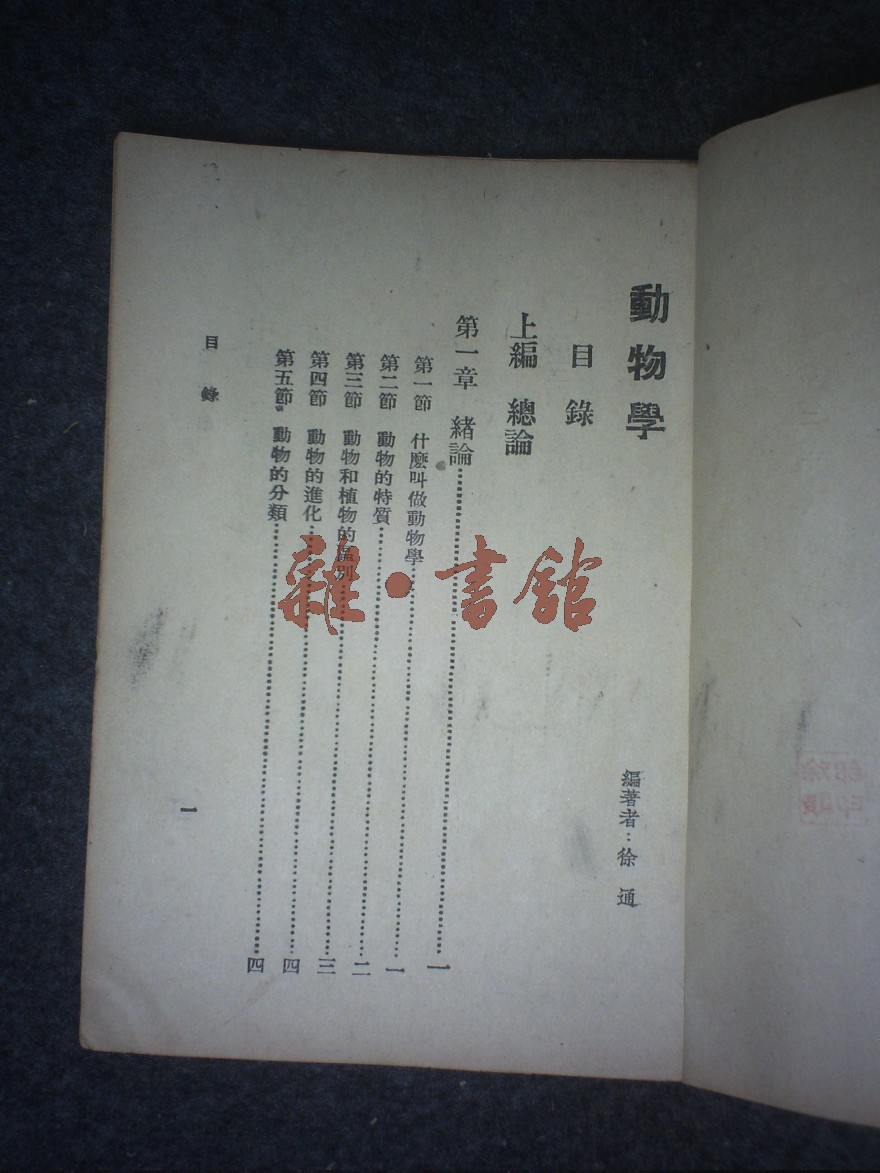 動物學
編著者：徐 通
目錄
上編 總論
第一章 緒論……一
第一節 什麼叫做動物學……一
第二節 動物的特質……二
第三節 動物和植物的區別……三
第四節 動物的進化……四
第五節 動物的分類……四
目錄
一
雜·書館